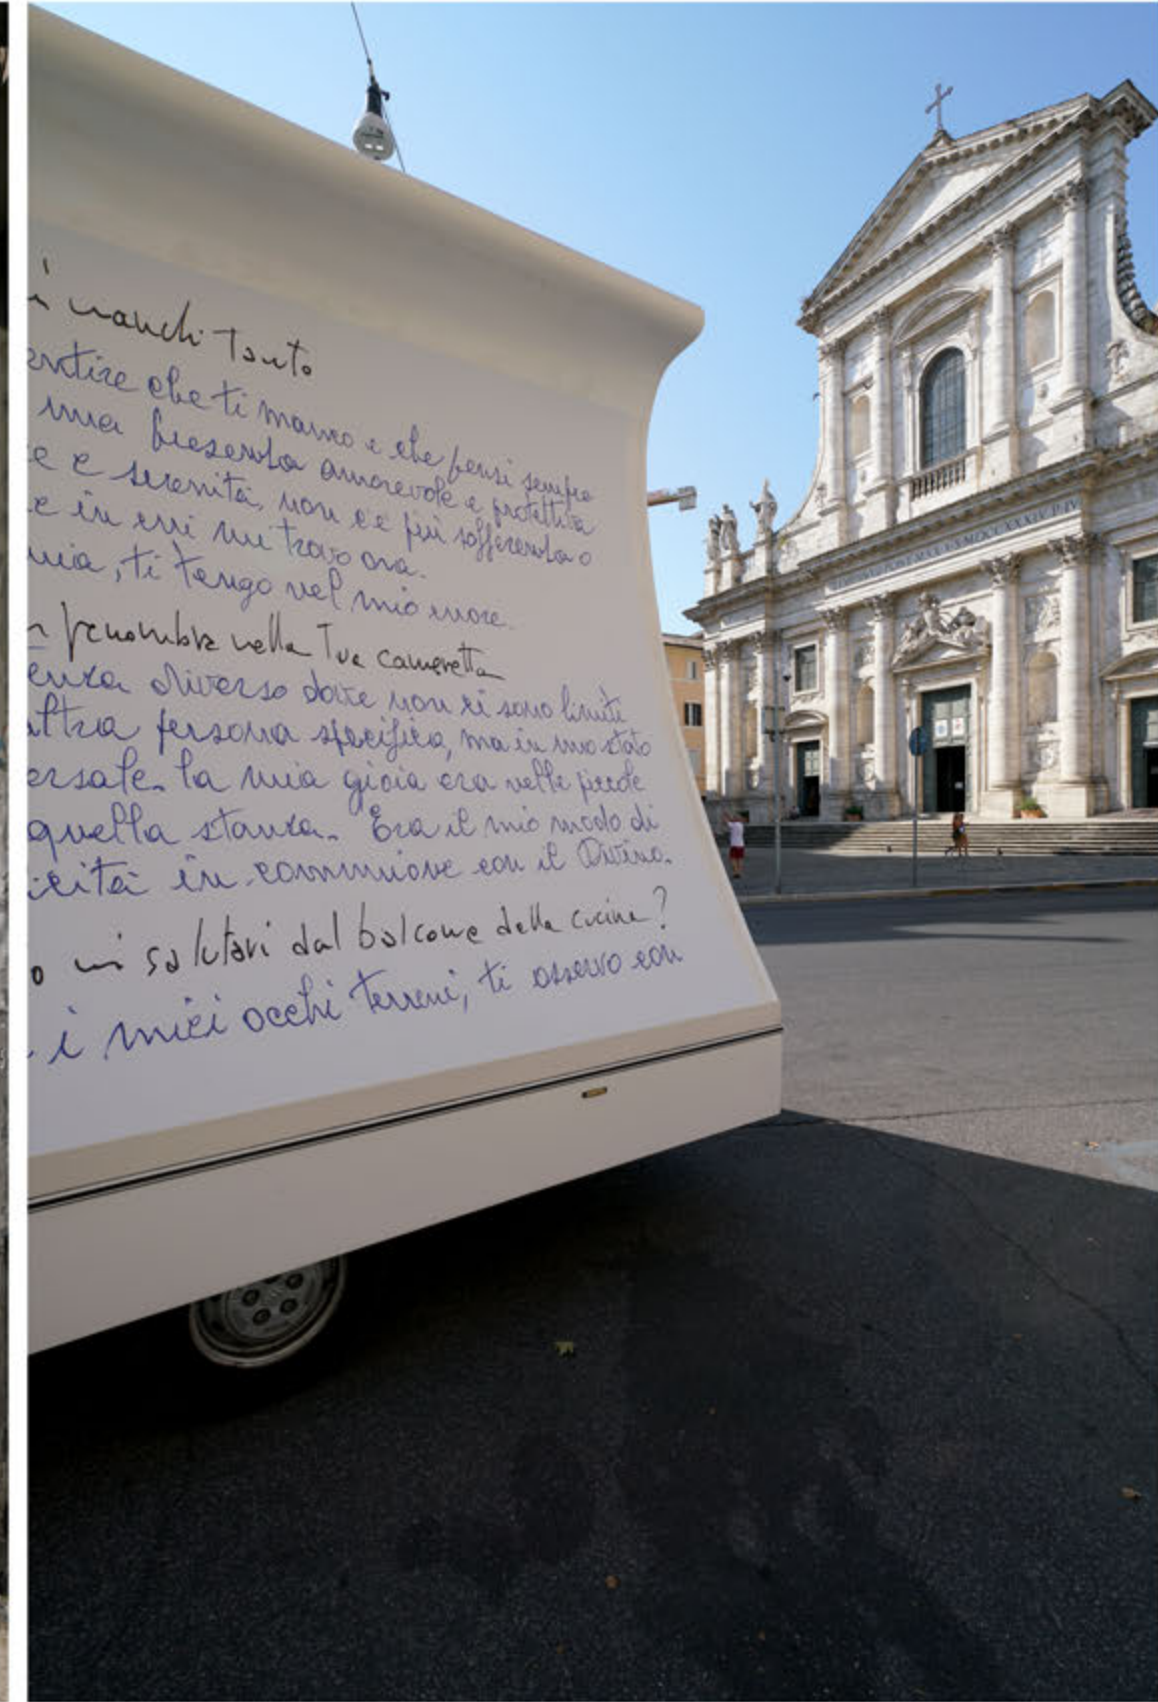 i manchi tanto
entire che ti manco e che pensi sempre
mia presenza amorevole e protettiva
e e serenità, non c'è più sofferenza o
e in cui mi trovo ora.
mia, ti tengo nel mio cuore.
n penombra nella tua cameretta
enza diverso dove non ci sono limiti
altra persona specifica, ma in uno stato
ersale. la mia gioia era nelle piccole
quella stanza. Era il mio modo di
icità in comunione con il Divino.
o mi salutavi dal balcone della cucina?
i miei occhi terreni, ti osservo con